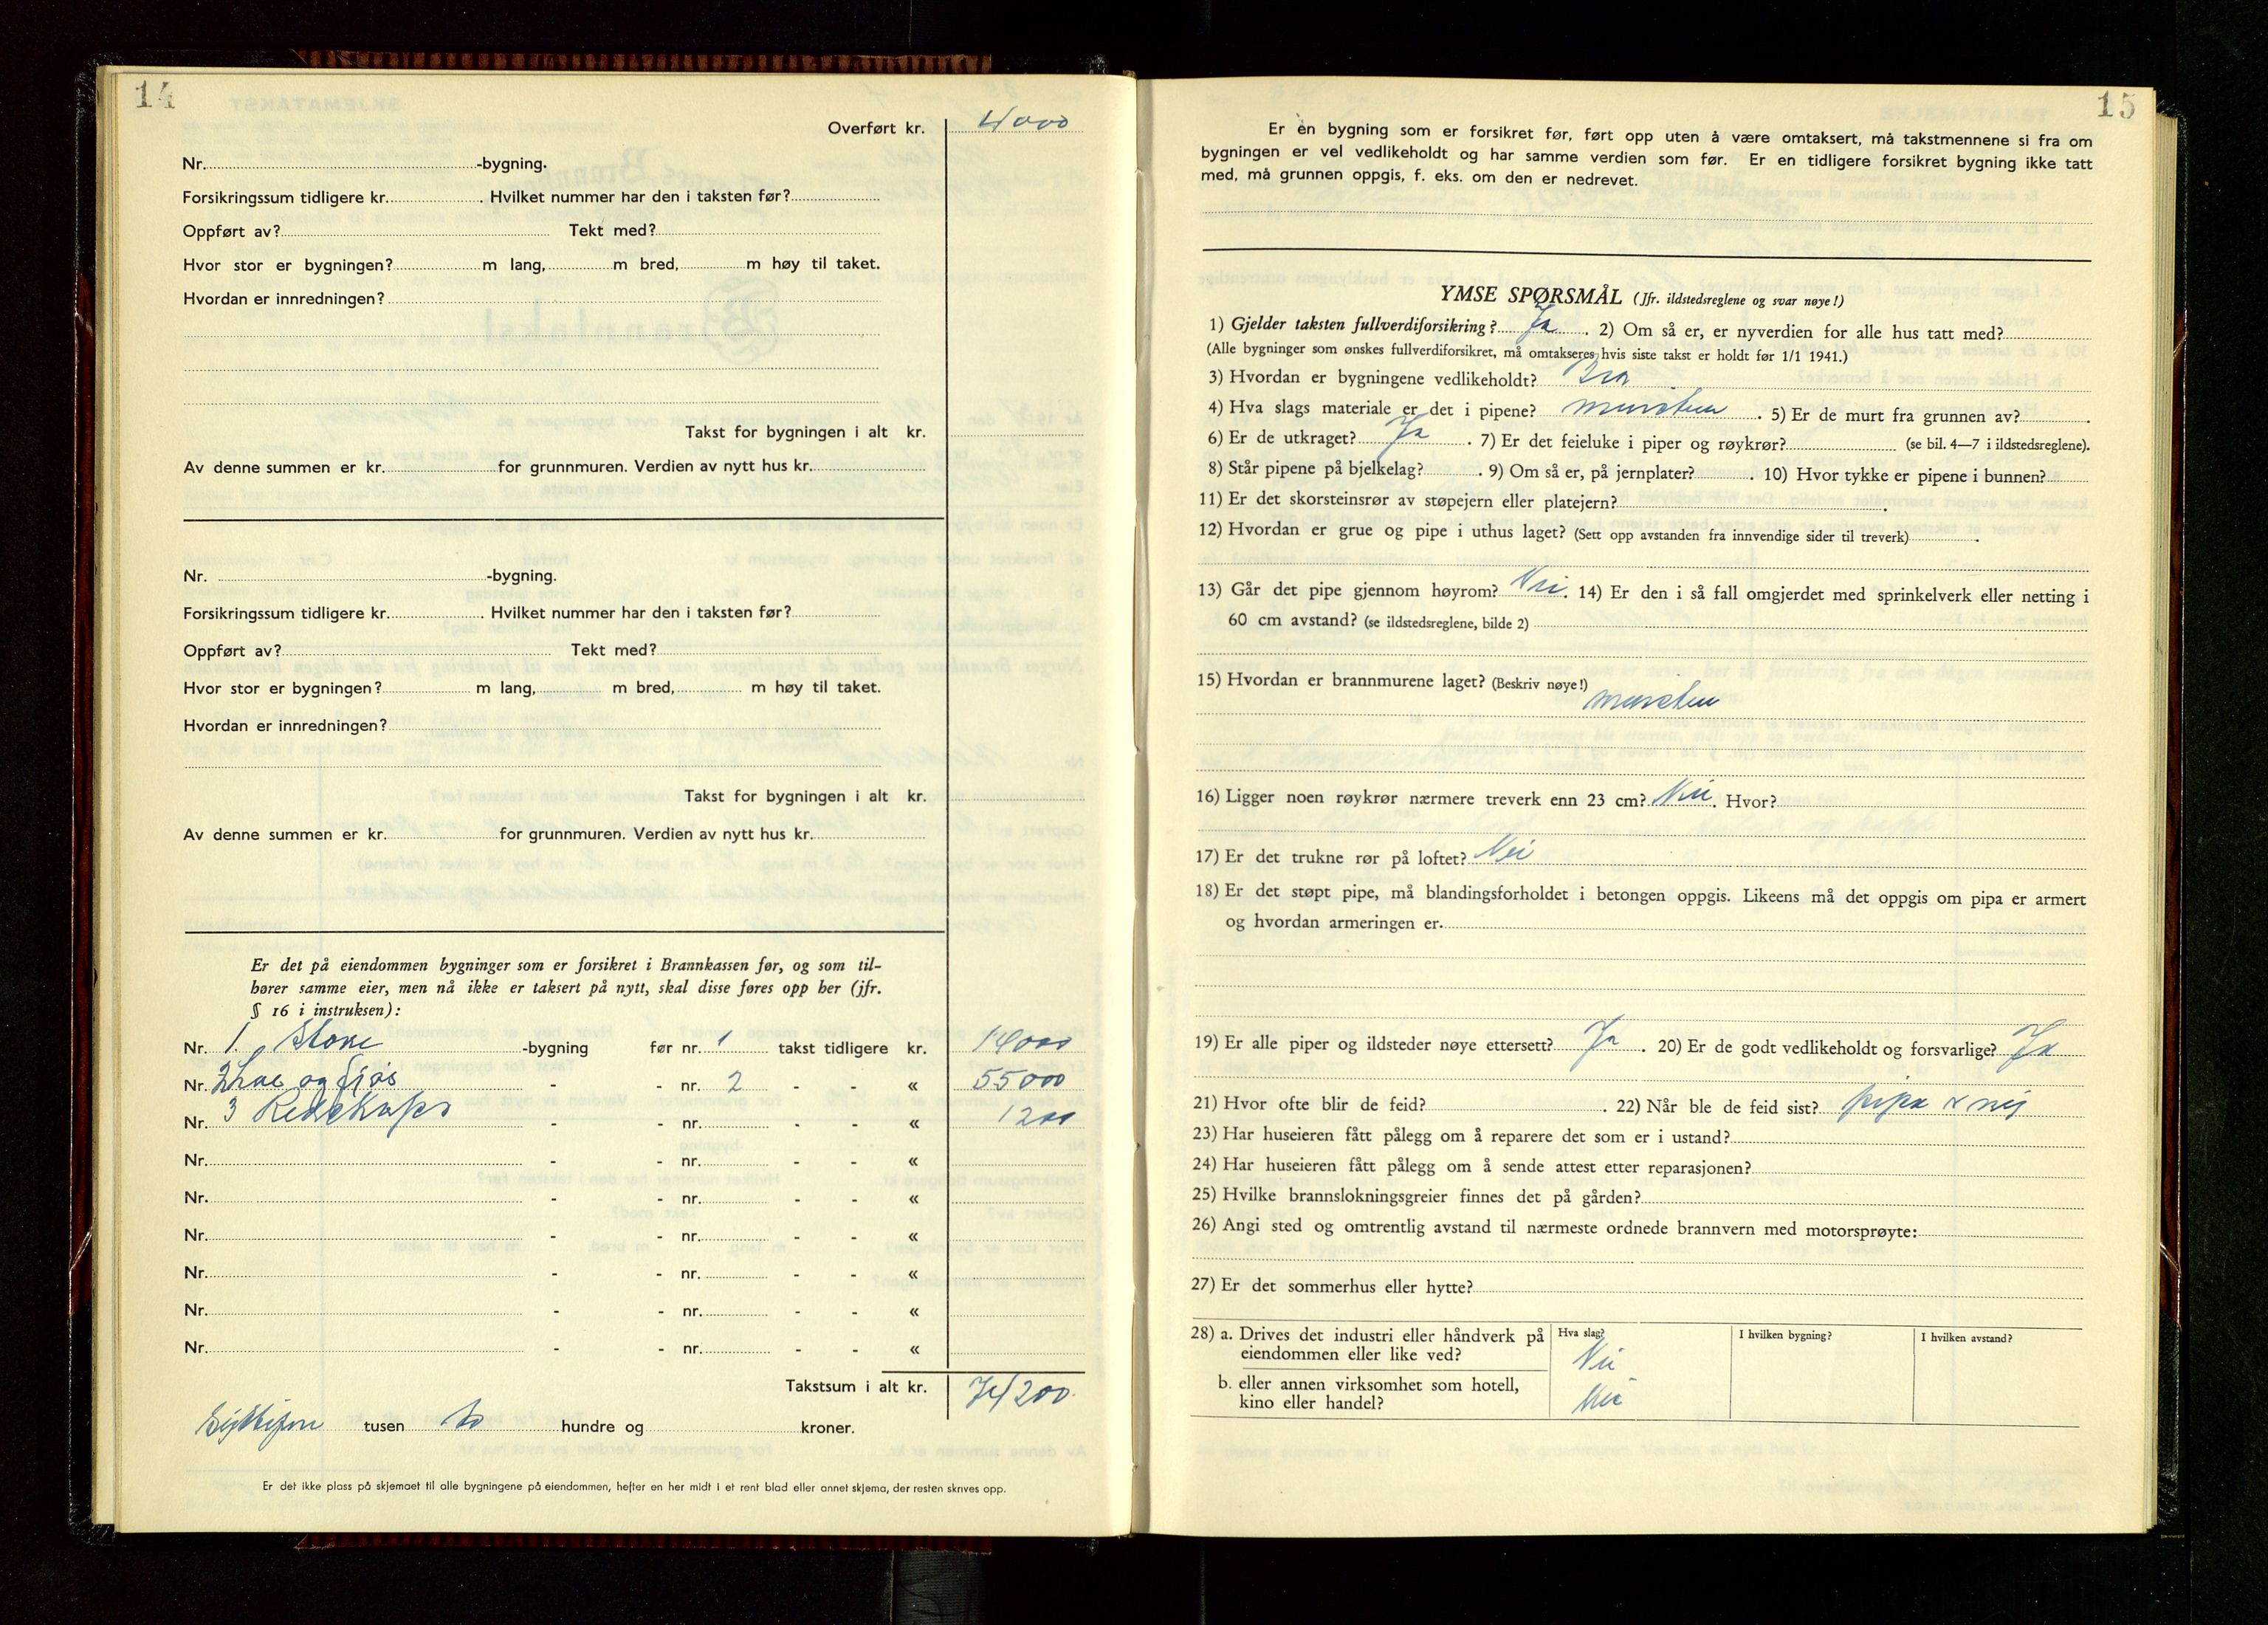 14
Overført kr. 4000
Nr. -bygning.
Forsikringssum tidligere kr. . Hvilket nummer har den i taksten før?
Oppført av? Tekt med?
Hvor stor er bygningen? m lang, m bred, m høy til taket.
Hvordan er innredningen?
Takst for bygningen i alt kr.
Av denne summen er kr. for grunnmuren. Verdien av nytt hus kr.
Nr. -bygning.
Forsikringssum tidligere kr. . Hvilket nummer har den i taksten før?
Oppført av? Tekt med?
Hvor stor er bygningen? m lang, m bred, m høy til taket.
Hvordan er innredningen?
Takst for bygningen i alt kr.
Av denne summen er kr. for grunnmuren. Verdien av nytt hus kr.
Er det på eiendommen bygninger som er forsikret i Brannkassen før, og som til-
hører samme eier, men nå ikke er taksert på nytt, skal disse føres opp her (jfr.
§ 16 i instruksen):
Nr. 1. -bygning før nr. 1 takst tidligere kr. 14000
Nr. 2 Løe og fjøs - - nr. 2 - - « 55000
Nr. 3 Redskaps - - nr. - - « 1200
Nr. - - nr. - - «
Nr. - - nr. - - «
Nr. - - nr. - - «
Nr. - - nr. - - «
Nr. - - nr. - - «
Nr. - - nr. - - «
Takstsum i alt kr. 74200.
tusen to hundre og kroner.
Er det ikke plass på skjemaet til alle bygningene på eiendommen, hefter en her midt i et rent blad eller annet skjema, der resten skrives opp.
15
Er èn bygning som er forsikret før, ført opp uten å være omtaksert, må takstmennene si fra om
bygningen er vel vedlikeholdt og har samme verdien som før. Er en tidligere forsikret bygning ikke tatt
med, må grunnen oppgis, f. eks. om den er nedrevet.
YMSE SPØRSMÅL (Jfr. ildstedsreglene og svar nøye!)
1) Gjelder taksten fullverdiforsikring? Ja . 2) Om så er, er nyverdien for alle hus tatt med?
(Alle bygninger som ønskes fullverdiforsikret, må omtakseres hvis siste takst er holdt før 1/1 1941.)
3) Hvordan er bygningene vedlikeholdt? Bra
4) Hva slags materiale er det i pipene? murstein . 5) Er de murt fra grunnen av? .
6) Er de utkraget? Ja . 7) Er det feieluke i piper og røykrør? (se bil. 4—7 i ildstedsreglene).
8) Står pipene på bjelkelag? . 9) Om så er, på jernplater? . 10) Hvor tykke er pipene i bunnen?
11) Er det skorsteinsrør av støpejern eller platejern? .
12) Hvordan er grue og pipe i uthus laget? (Sett opp avstanden fra innvendige sider til treverk) .
13) Går det pipe gjennom høyrom? Nei . 14) Er den i så fall omgjerdet med sprinkelverk eller netting i
60 cm avstand? (se ildstedsreglene, bilde 2)
15) Hvordan er brannmurene laget? (Beskriv nøye!) murstein
16) Ligger noen røykrør nærmere treverk enn 23 cm? Nei . Hvor?
17) Er det trukne rør på loftet? Nei
18) Er det støpt pipe, må blandingsforholdet i betongen oppgis. Likeens må det oppgis om pipa er armert
og hvordan armeringen er.
19) Er alle piper og ildsteder nøye ettersett? Ja . 20) Er de godt vedlikeholdt og forsvarlige? Ja
21) Hvor ofte blir de feid? . 22) Når ble de feid sist? pipa er ny
23) Har huseieren fått pålegg om å reparere det som er i ustand?
24) Har huseieren fått pålegg om å sende attest etter reparasjonen?
25) Hvilke brannslokningsgreier finnes det på gården?
26) Angi sted og omtrentlig avstand til nærmeste ordnede brannvern med motorsprøyte:
27) Er det sommerhus eller hytte?
28) a. Drives det industri eller håndverk på Hva slag? I hvilken bygning? I hvilken avstand?
eiendommen eller like ved? Nei
b. eller annen virksomhet som hotell,
kino eller handel? Nei